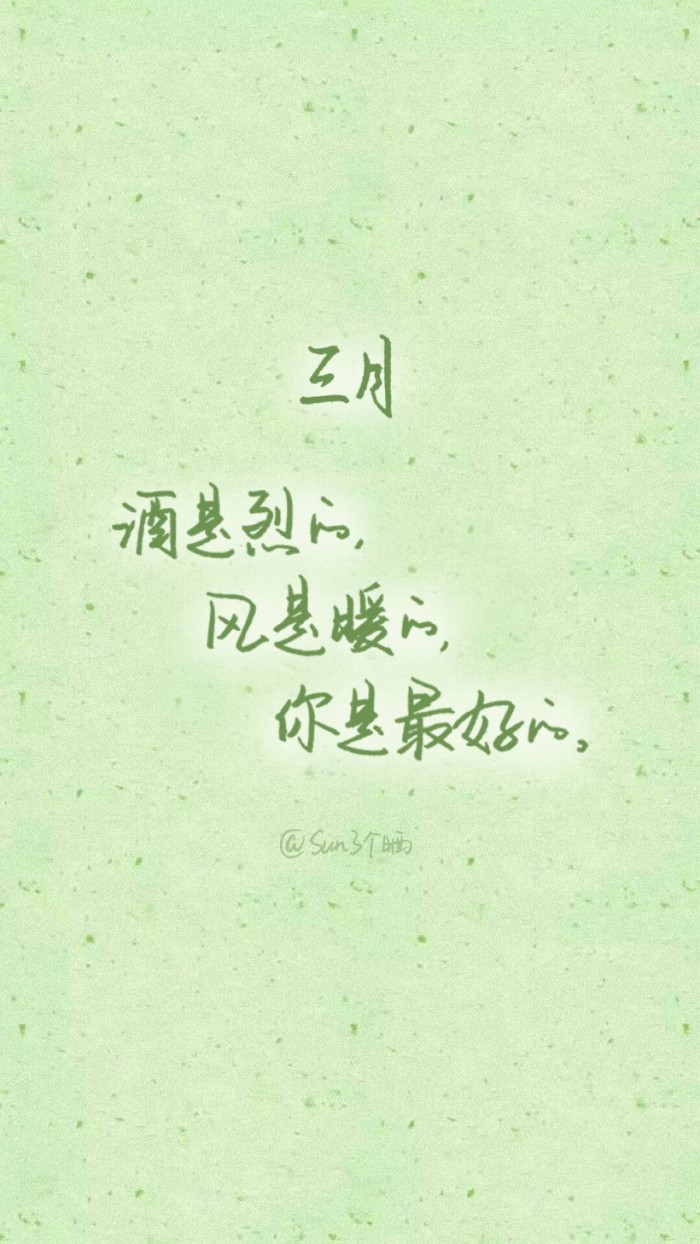 三月
酒是烈的,
风是暖的,
你是最好的。
@Sun了个晒